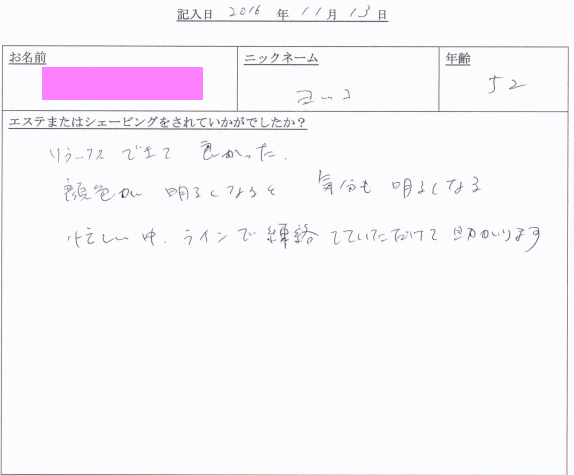 記入日 2016 年 11月 13日
お名前 ニックネーム 年齢
ヨーコ 52
エステまたはシェービングをされていかがでしたか？
リラックスできて 良かった.
顔色が 明るくなると 気分も 明るくなる
忙しい中、ラインで練絡していただけて助かります